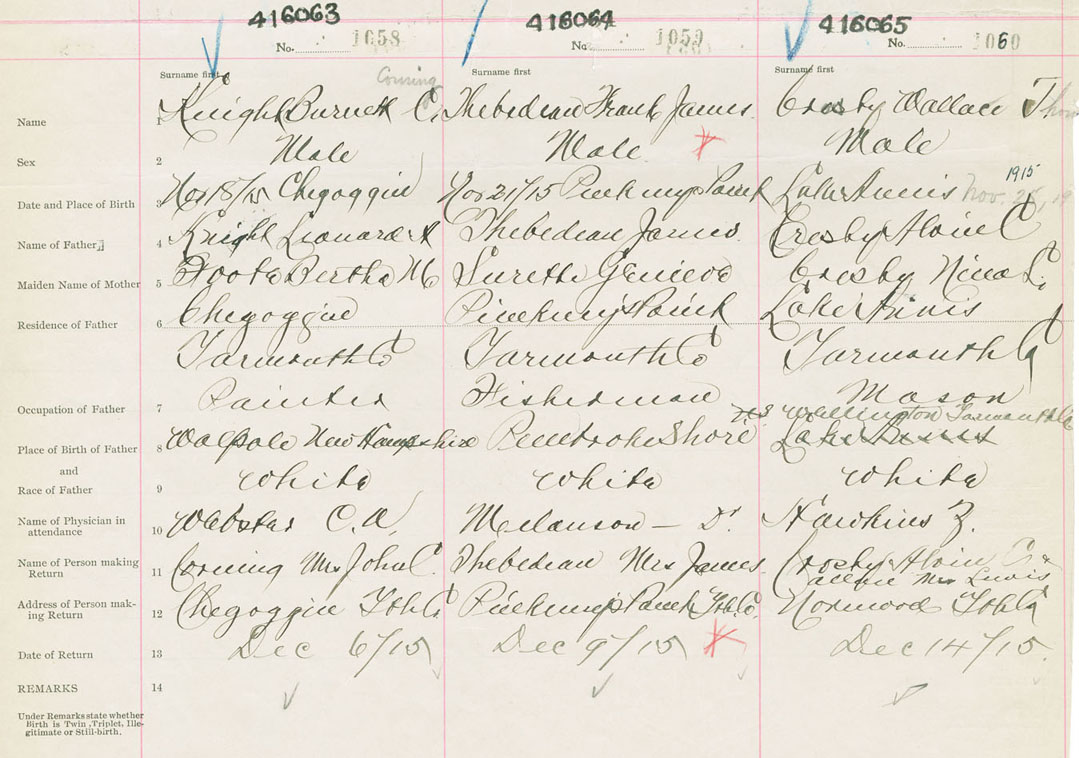 416063 416064 416065
No. 1058 No. 1059 No. 1060
Surname first Surname first Surname first
Corning
Name 1 Knight Burnett C. Thebedeau Frank James Crosby Wallace
Sex 2 Male Male Male
1915
Date and Place of Birth 3 Nov 18/15 Chegoggin Nov 21/15 Pinkney's Point Lake Annis Nov. 25, 19
Name of Father 4 Knight Leonard A Thebedeau James Crosby Alvin C
Maiden Name of Mother 5 Foote Bertha M Surette Genieve Crosby Nina L.
Residence of Father 6 Chegoggin Pinkney's Point Lake Annis
Yarmouth Co Yarmouth Co Yarmouth Co
Occupation of Father 7 Painter Fisherman Mason
N.S. Wellington Yarmouth Co
Place of Birth of Father 8 Walpole New Hampshire Pembroke Shore Lake Annis
and
Race of Father 9 White White White
Name of Physician in
attendance 10 Webster C. A. Melanson — Dr Hawkins Z.
Name of Person making
Return 11 Corning Mrs John C. Thebedeau Mrs James Crosby Alvin C. &
Mrs Lewis
Address of Person mak-
ing Return 12 Chegoggin Yth Co Pinkney's Point Yth. Co. Norwood Yth Co
Date of Return 13 Dec 6/15 Dec 9/15 Dec 14/15.
REMARKS 14
Under Remarks state whether
Birth is Twin, Triplet, Ille-
gitimate or Still-birth.